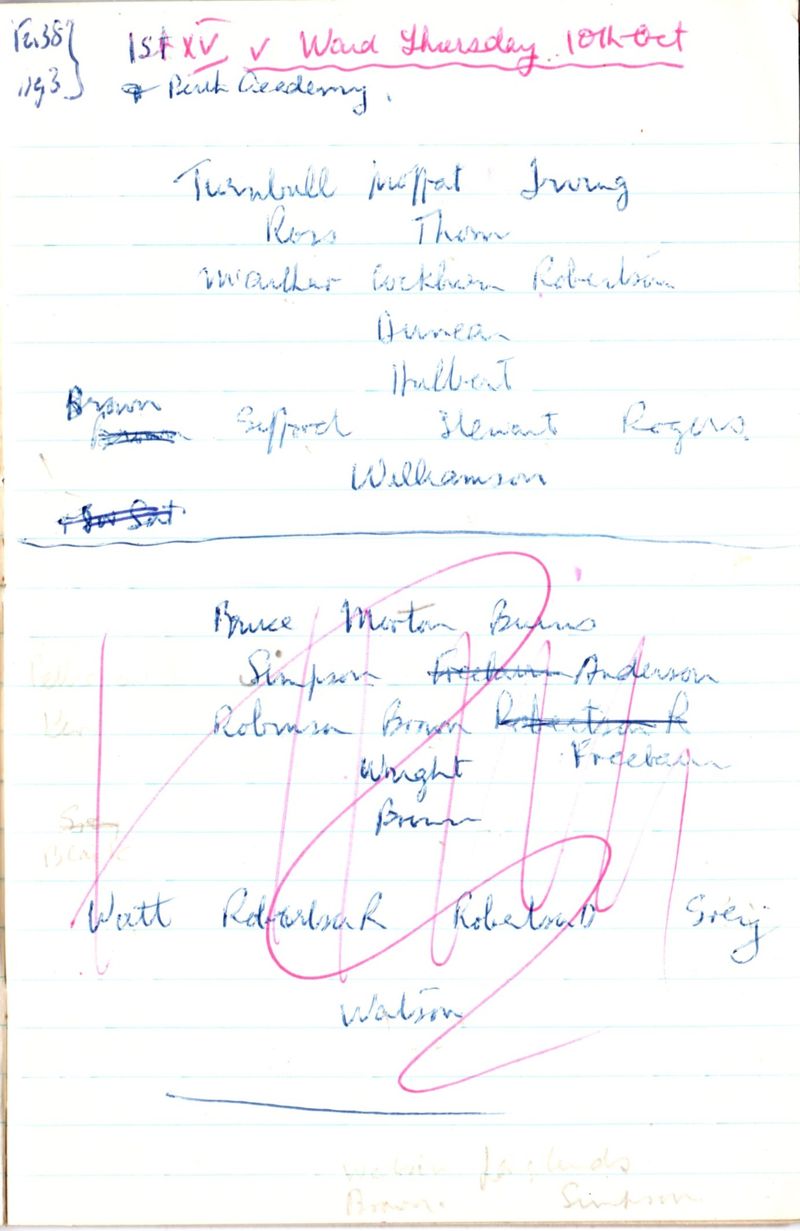 1st XV v Ward Thursday 10th Oct
Perth Academy.
Turnbull Moffat Irving
Ross Thom
Cockburn Robertson
Duncan
Hulbert
Brown
Brown Stewart Rogers
Williamson
Bruce Morton Burns
Simpson Freebairn Anderson
Robinson Brown Robertson R
Wright Freebairn
Brown
Watt Robertson R Robertson D Greig
Watson
Brown. Simpson